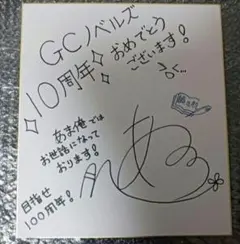 GCノベルズ
10周年
おめでとう
ございます!
あま俺では
お世話になって
おります!
目指せ
100周年!